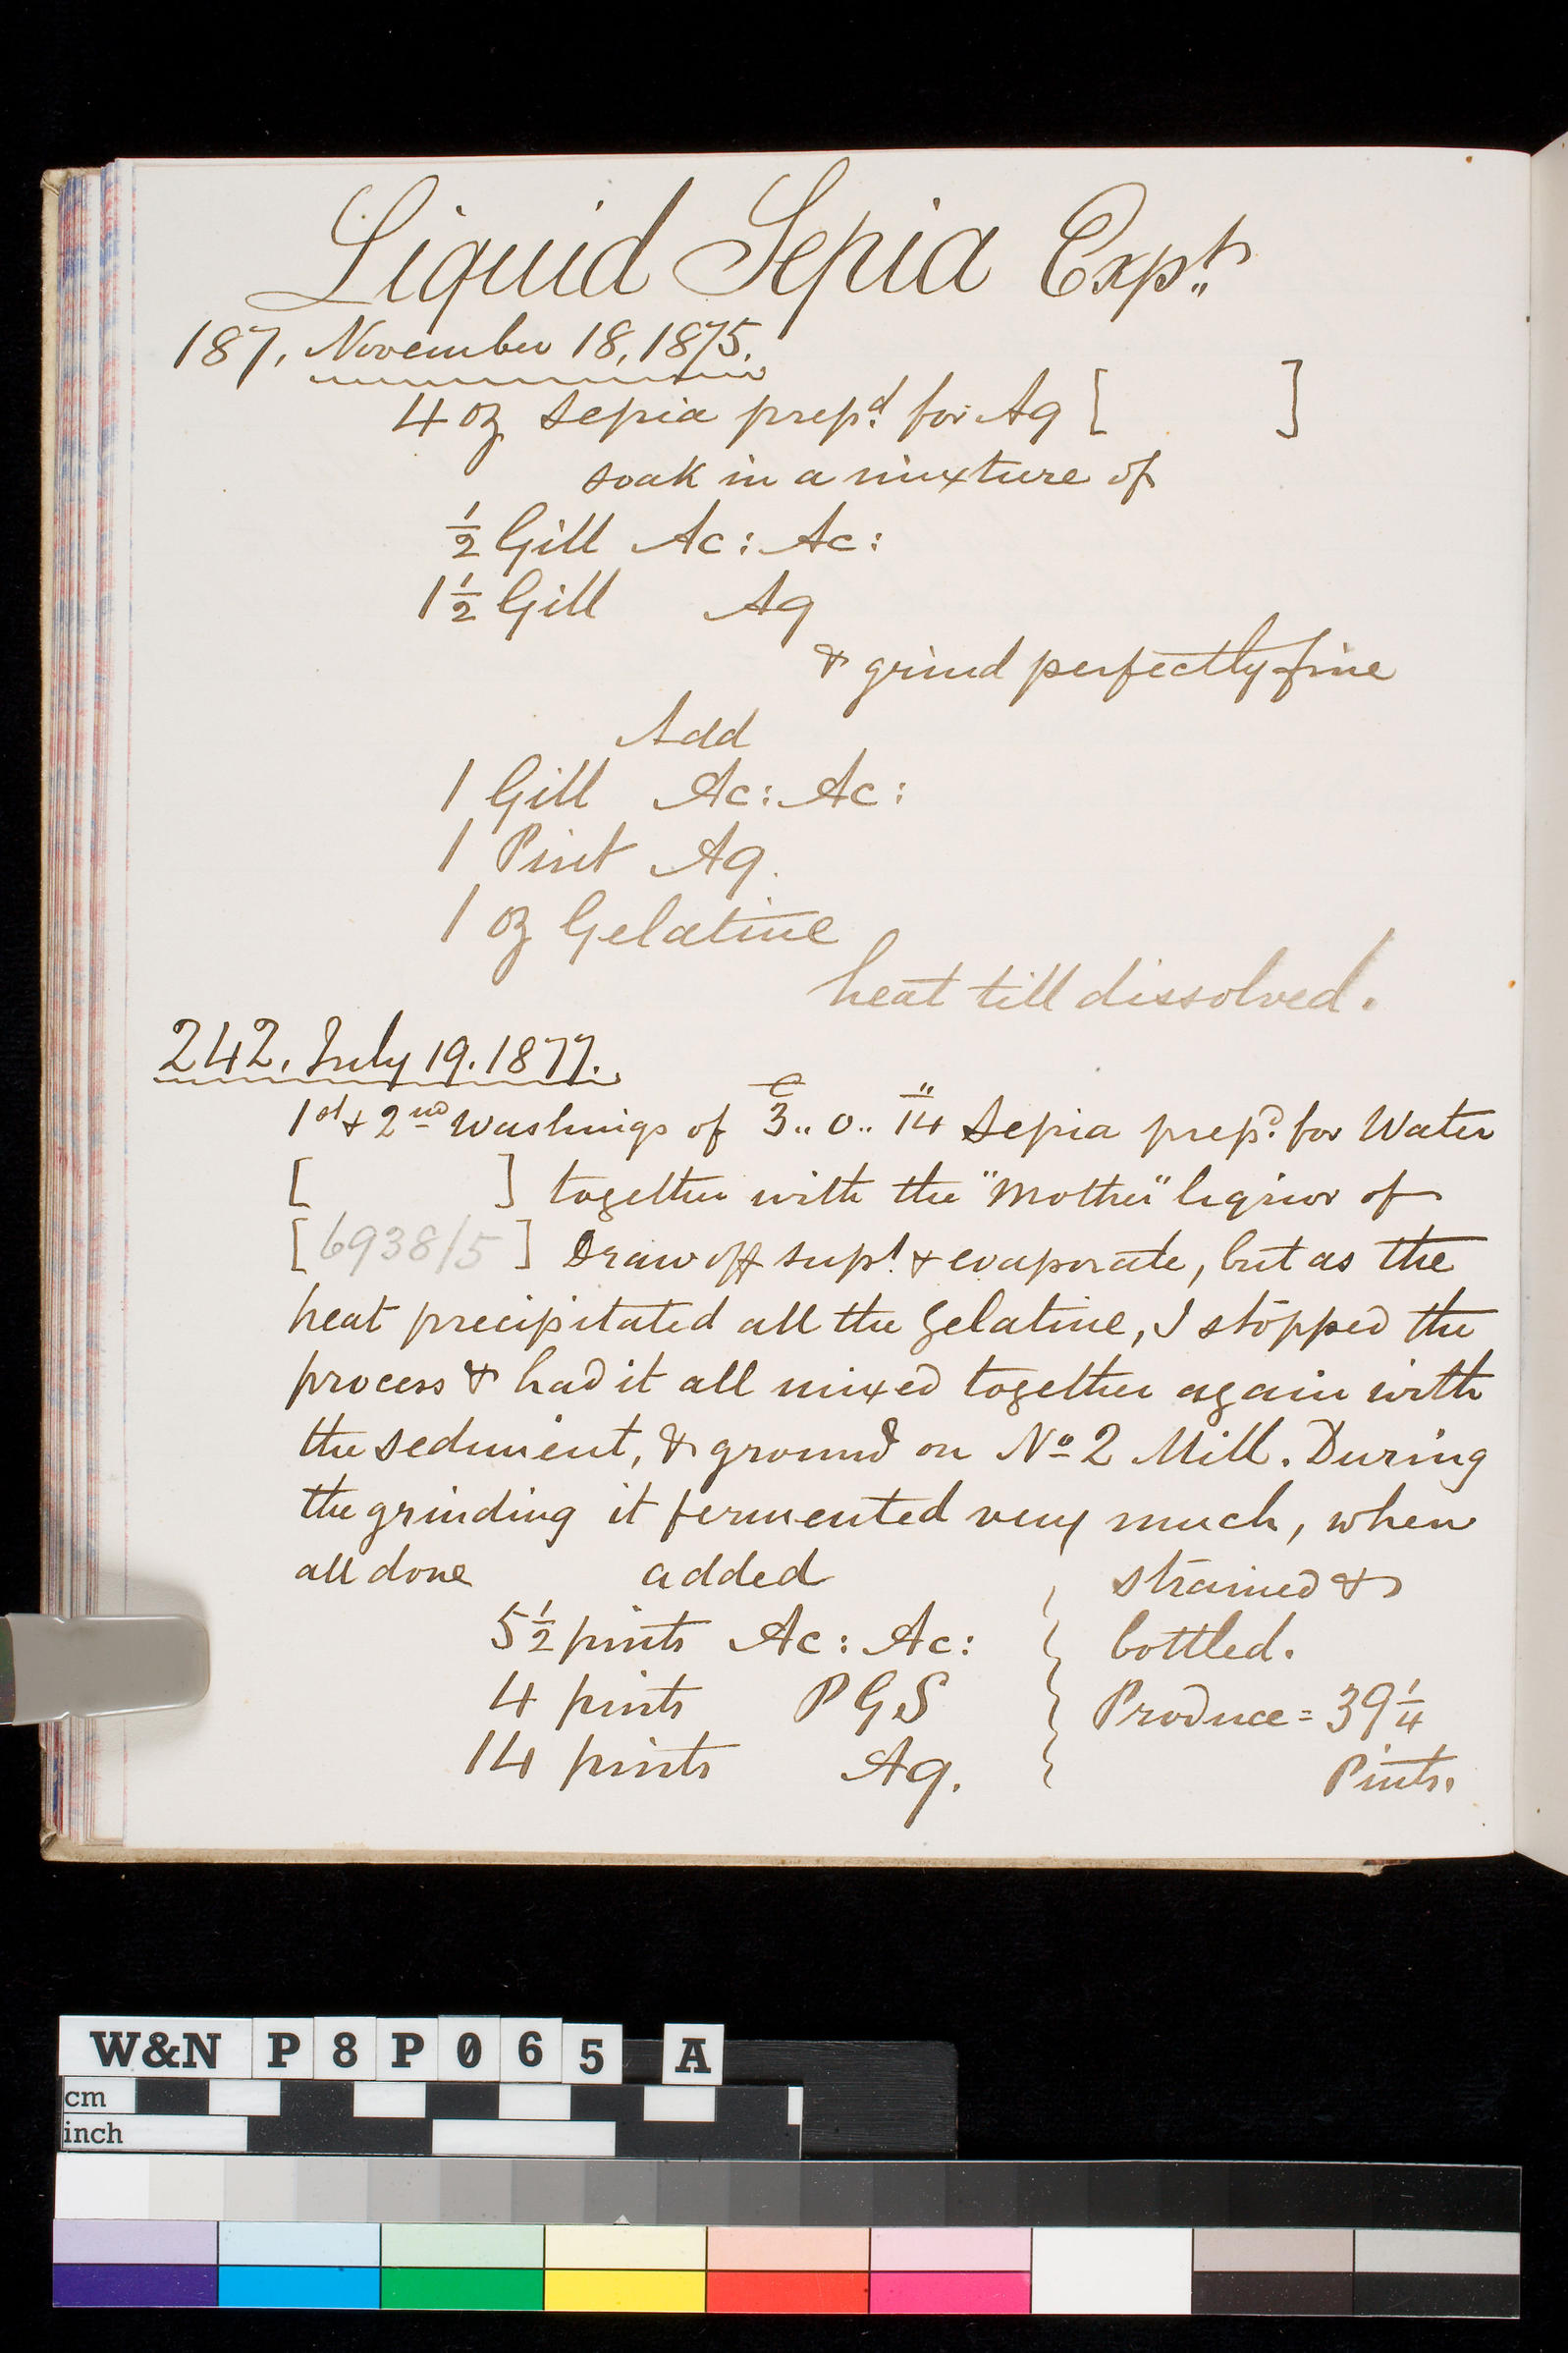 Liquid Sepia Expts
187. November 18, 1875.
4 oz Sepia prepd. for Aq [ ]
soak in a mixture of
½ Gill Ac: Ac:
1½ Gill Aq
& grind perfectly fine
Add
1 Gill Ac: Ac:
1 Pint Aq.
1 oz Gelatine
heat till dissolved.
242. July 19. 1877.
1st & 2nd Washings of 3 .. 0 .. 14 Sepia prepd. for Water
[ ] together with the "Mother" liquor of
[6938/5] Draw off supt. & evaporate, but as the
heat precipitated all the Gelatine, I stopped the
process & had it all mixed together again with
the sediment, & ground on No 2 Mill. During
the grinding it fermented very much, when
all done added strained &
5½ pints Ac: Ac: bottled.
4 pints P G S Produce = 39¼
14 pints Aq. Pints.
W&N P8P065 A
cm
inch